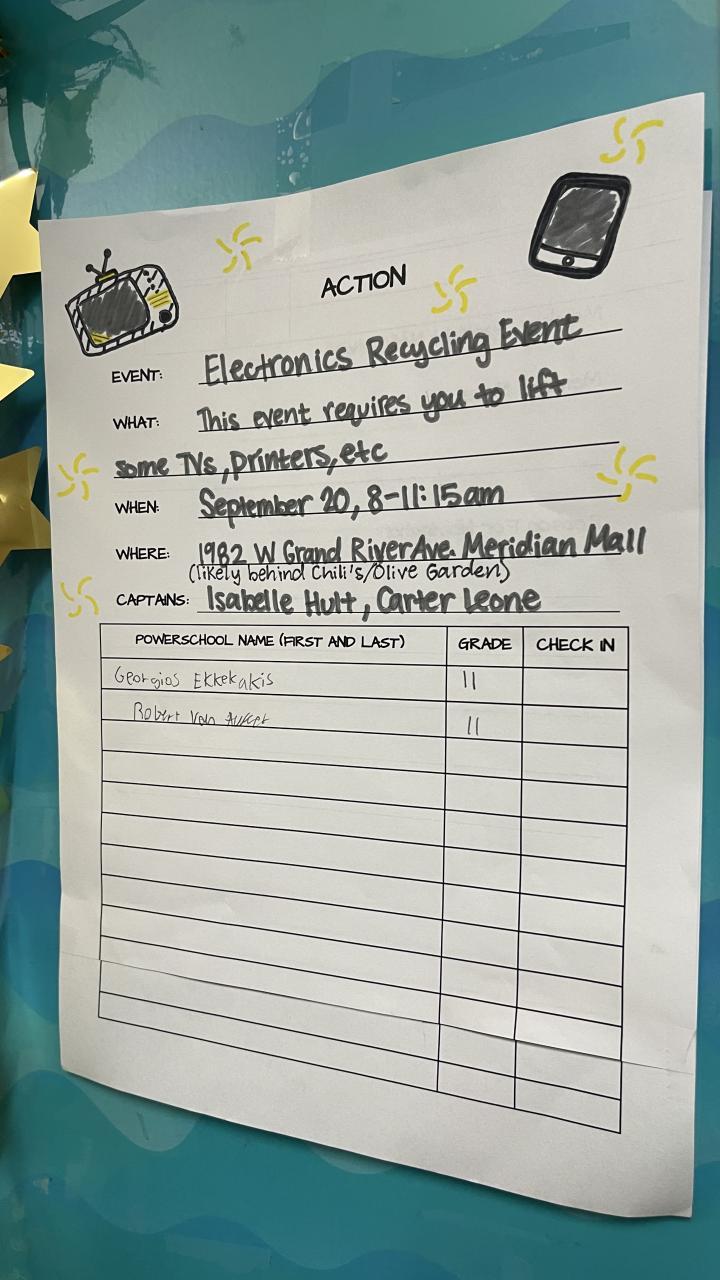 ACTION
EVENT: Electronics Recycling Event
WHAT: This event requires you to lift
some TVs, printers, etc
WHEN: September 20, 8-11:15am
WHERE: 1982 W Grand River Ave. Meridian Mall
(likely behind Chili's/Olive Garden)
CAPTAINS: Isabelle Hult, Carter Leone
POWERSCHOOL NAME (FIRST AND LAST) GRADE CHECK IN
Georgios Ekkekakis 11
Robert Van 11